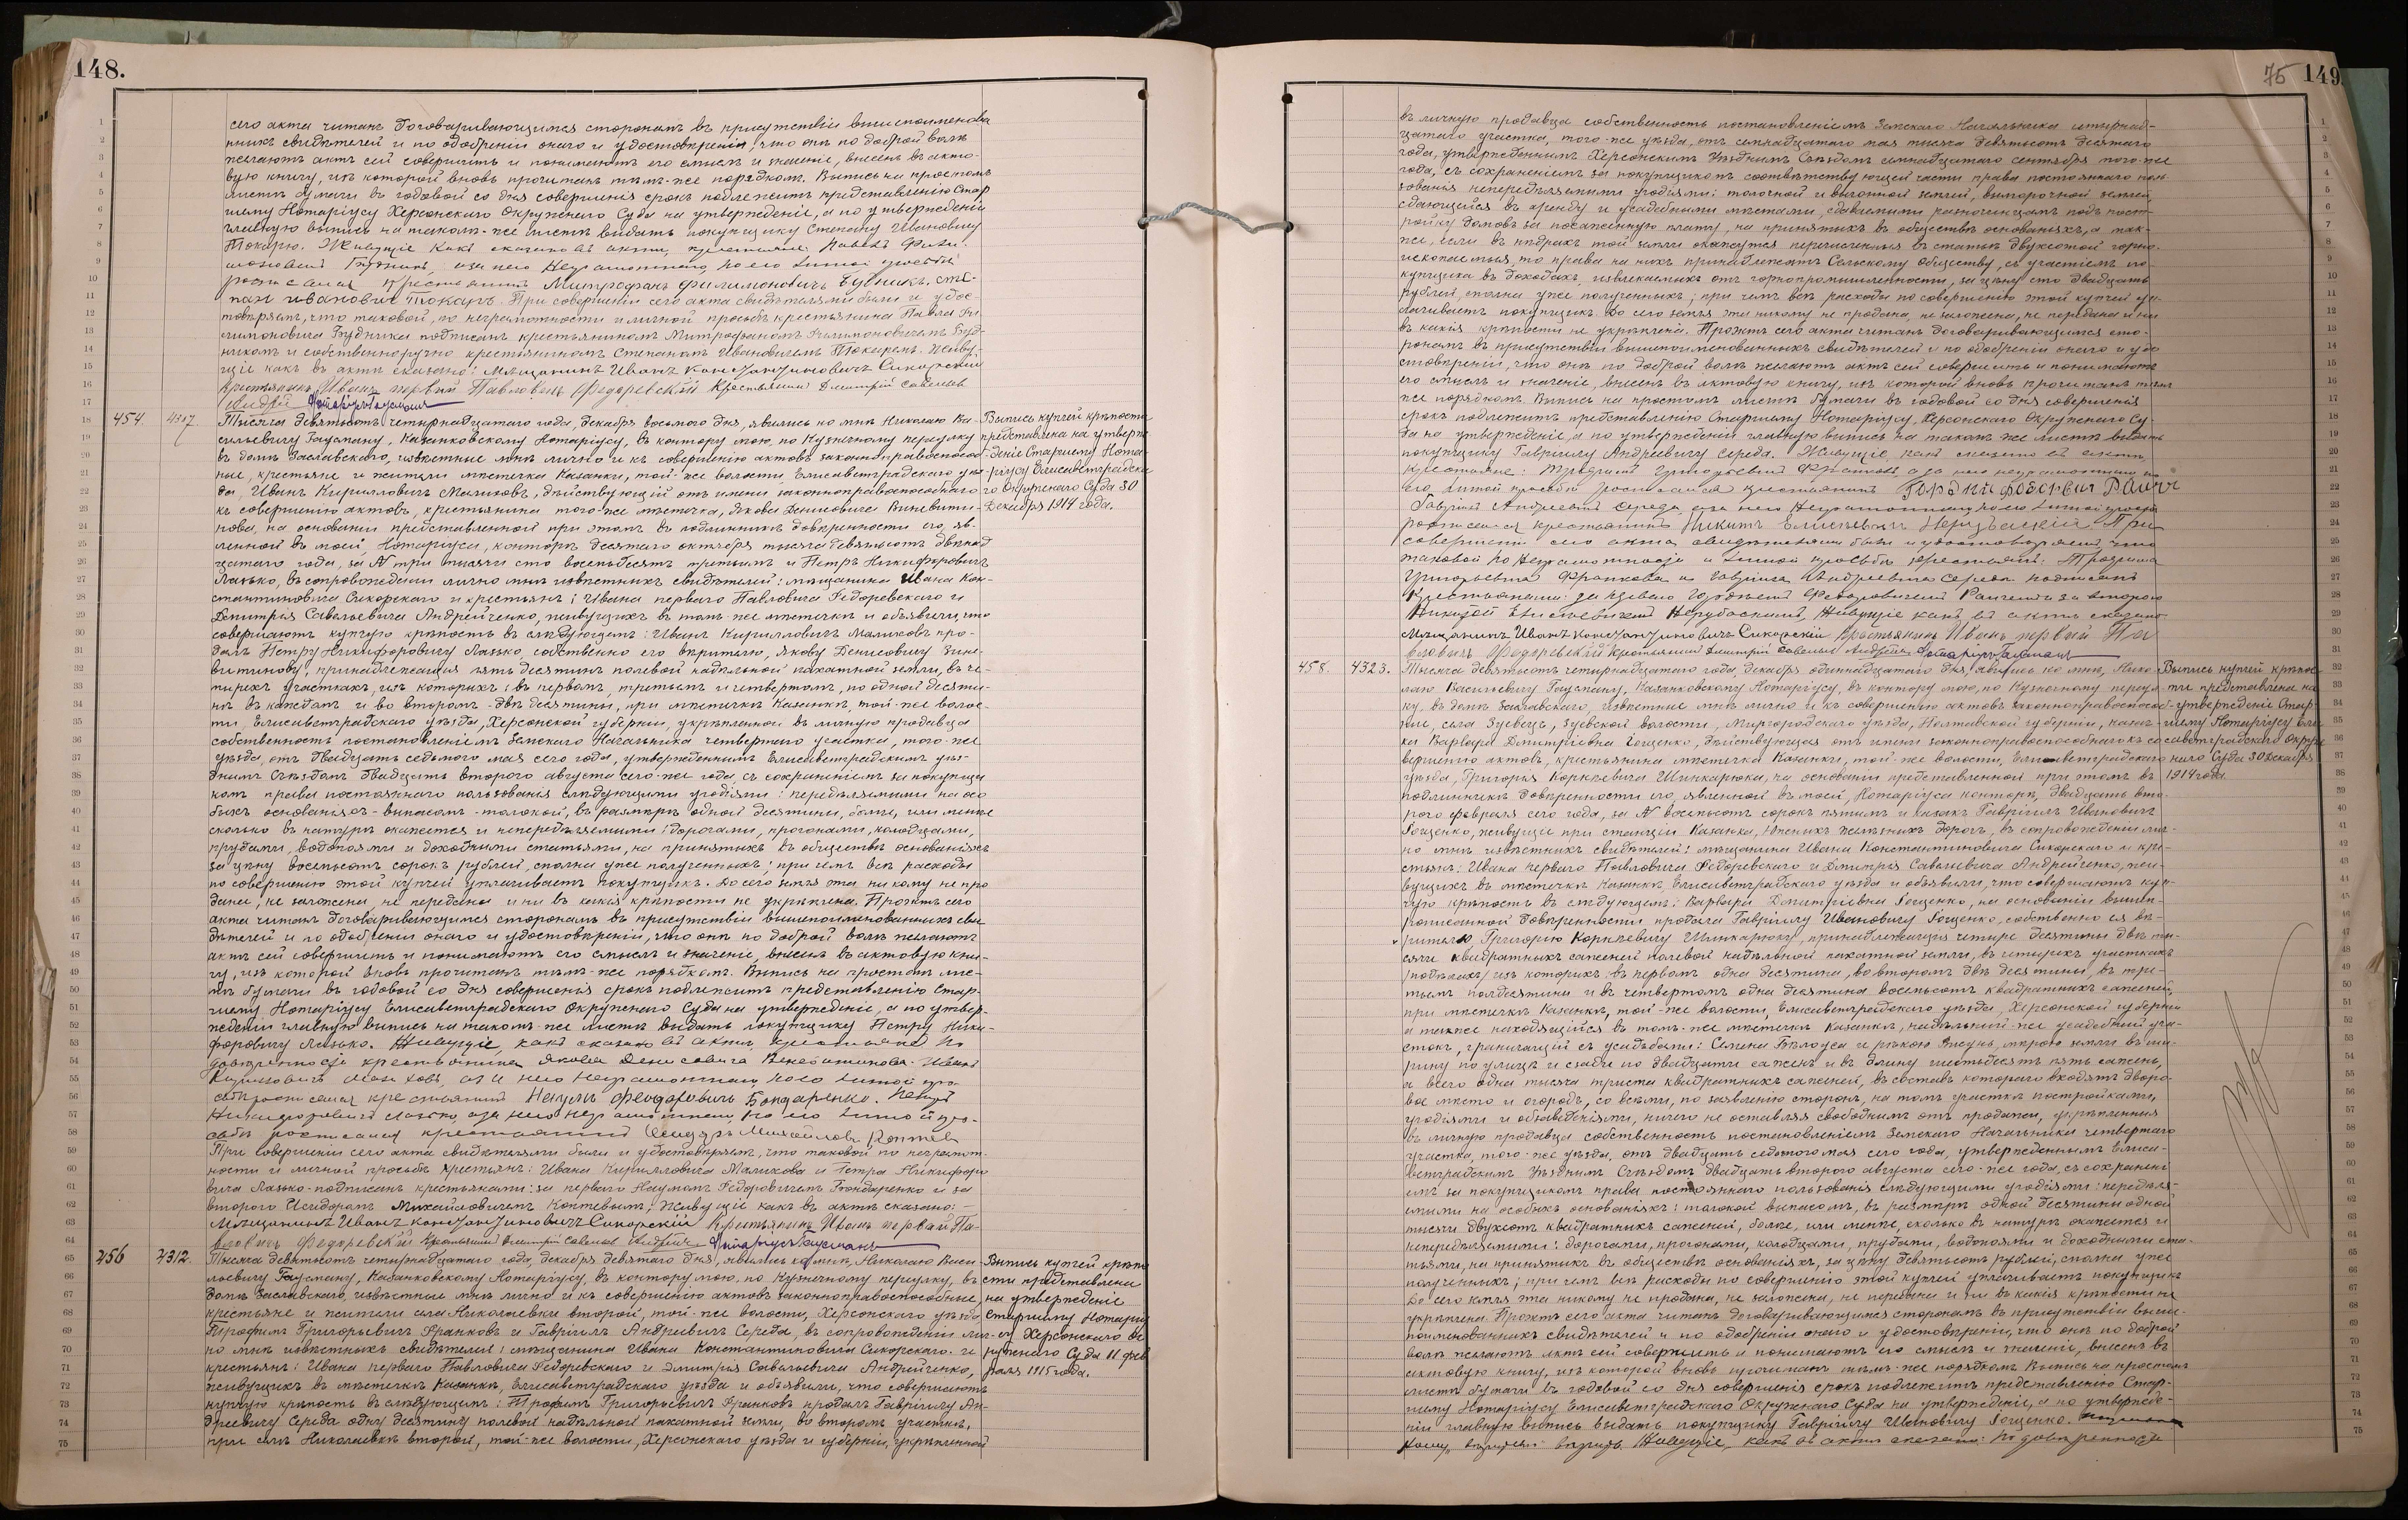 148.
сего акта читанъ договаривающимся сторонамъ въ присутствіи вышепоименова
нныхъ свидѣтелей и по одобреніи онаго и удостовѣреніи, что они по доброй волѣ
желаютъ актъ сей совершить и понимаютъ его смыслъ и значеніе, внесенъ въ акто-
вую книгу, изъ которой вновь прочитанъ тѣмъ-же порядкомъ. Выпись на простомъ
листѣ бумаги въ годовой со дня совершенія срокъ подлежитъ представленію Стар
шему Нотаріусу Херсонскаго Окружнаго Суда на утвержденіе, а по утвержденіи
главную выпись на такомъ-же листѣ выдать покупщику Степану Ивановичу
Токарю. Живущіе какъ сказано въ актѣ, крестьяне: Павелъ Фили-
моновичъ Будникъ, а за него неграмотнаго по его личной просьбѣ
росписался крестьянинъ Митрофанъ Филимоновичъ Будникъ. Сте-
панъ Ивановичъ Токарь. При совершеніи сего акта свидѣтелями были и удос-
товѣряемъ, что таковой, по неграмотности и личной просьбѣ крестьянина Павла Фи-
лимоновича Будника подписанъ крестьяниномъ Митрофаномъ Филимоновичемъ Буд-
никомъ и собственноручно крестьяниномъ Степаномъ Ивановичемъ Токаремъ. Живу-
щіе какъ въ актѣ сказано: Мѣщанинъ Иванъ Константиновичъ Сикорскій
Крестьянинъ Иванъ первый Павловичъ Федоревскій Крестьянинъ Дмитрій Савельев
Андрей Нотаріусъ Гаусманъ
454. 4307. Тысяча девятьсотъ четырнадцатаго года, декабря восьмого дня, явились ко мнѣ Николаю Ва-
сильевичу Гаусману, Казанковскому Нотаріусу, въ контору мою, по Кузнечному переулку
въ домѣ Заславскаго, извѣстные мнѣ лично и къ совершенію актовъ законноправоспособ-
ные, крестьяне и жители мѣстечка Казанки, той-же волости, Елисаветградскаго уѣз
да, Иванъ Кирилловичъ Маликовъ, дѣйствующій отъ имени законноправоспособнаго
къ совершенію актовъ, крестьянина того-же мѣстечка, Якова Денисовича Виневити-
нова, на основаніи представленной при этомъ въ подлинникѣ довѣренности его, яв-
ленной въ моей, Нотаріуса, конторѣ десятаго октября тысяча девятьсотъ двѣнад
цатаго года, за N три тысячи сто восемьдесятъ третьимъ и Петръ Никифоровичъ
Лазько, въ сопровожденіи лично мнѣ извѣстныхъ свидѣтелей: мѣщанина Ивана Кон-
стантиновича Сикорскаго и крестьянъ: Ивана перваго Павловича Федоревскаго и
Дмитрія Савельевича Андрейченко, живущихъ въ томъ-же мѣстечкѣ и объявили, что
совершаютъ купчую крѣпость въ слѣдующемъ: Иванъ Кирилловичъ Маликовъ про-
далъ Петру Никифоровичу Лазько, собственно его вѣрителю, Якову Денисовичу Вине-
витинову, принадлежащія пять десятинъ полевой надѣльной пахатной земли, въ че-
тырехъ участкахъ, изъ которыхъ: въ первомъ, третьемъ и четвертомъ, по одной десяти-
нѣ въ каждомъ и во второмъ - двѣ десятины, при мѣстечкѣ Казанкѣ, той-же волос-
ти, Елисаветградскаго уѣзда, Херсонской губерніи, укрѣпленной въ личную продавца
собственность постановленіемъ Земскаго Начальника четвертаго участка, того-же
уѣзда, отъ двадцать седьмого мая сего года, утвержденнымъ Елисаветградскимъ уѣз-
днымъ Съѣздомъ двадцать второго августа сего-же года, съ сохраненіемъ за покупщи
комъ права постояннаго пользованія слѣдующими угодіями: передѣляемыми на осо
быхъ основаніяхъ - выпасомъ - толокой, въ размѣрѣ одной десятины, болѣе, или менѣе
сколько въ натурѣ окажется и непередѣляемыми: дорогами, прогонами, колодцами,
прудами, водопоями и доходными статьями, на принятыхъ въ обществѣ основаніяхъ
за цѣну восемьсотъ сорокъ рублей, сполна уже полученныхъ; при чемъ всѣ расходы
по совершенію этой купчей уплачиваетъ покупщикъ. До сего земля эта никому не про
дана, не заложена, не передана и ни въ какія крѣпости не укрѣплена. Проэктъ сего
акта читанъ договаривающимся сторонамъ въ присутствіи вышепоименованныхъ сви
дѣтелей и по одобреніи онаго и удостовѣреніи, что они по доброй волѣ желаютъ
актъ сей совершить и понимаютъ его смыслъ и значеніе, внесенъ въ актовую кни-
гу, изъ которой вновь прочитанъ тѣмъ-же порядкомъ. Выпись на простомъ лис-
тѣ бумаги въ годовой со дня совершенія срокъ подлежитъ представленію Стар-
шему Нотаріусу Елисаветградскаго Окружнаго Суда на утвержденіе, а по утвер-
жденіи главную выпись на такомъ-же листѣ выдать покупщику Петру Ники-
форовичу Лазько. Живущіе, какъ сказано въ актѣ, крестьяне: по
довѣренности крестьянина Якова Денисовича Виневитинова - Иванъ
Кирилловичъ Маликовъ, а за него неграмотнаго по его личной про-
сьбѣ росписался крестьянинъ Наумъ Феодоровичъ Бондаренко. Петръ
Никифоровичъ Лазько, а за него неграмотнаго, по его личной про-
сьбѣ росписался крестьянинъ Сидоръ Михайловъ Коптев
При совершеніи сего акта свидѣтелями были и удостовѣряемъ, что таковой по неграмот-
ности и личной просьбѣ крестьянъ: Ивана Кирилловича Маликова и Петра Никифоро
вича Лазько - подписанъ крестьянами: за перваго Наумомъ Федоровичемъ Бондаренко и за
второго Исидоромъ Михайловичемъ Коптевымъ, Живущіе какъ въ актѣ сказано: -
Мѣщанинъ Иванъ Константиновичъ Сикорскій Крестьянинъ Иванъ первый Па-
вловичъ Федоревскій Крестьянинъ Дмитрій Савельев Андрей Нотаріусъ Гаусманъ
Выпись купчей крѣпости
представлена на утверж-
деніе Старшему Нота-
ріусу Елисаветградска
го Окружнаго Суда 30
Декабря 1914 года.
456 4312. Тысяча девятьсотъ четырнадцатаго года, декабря девятаго дня, явились ко мнѣ, Николаю Васи
льевичу Гаусману, Казанковскому Нотаріусу, въ контору мою, по Кузнечному переулку, въ
домѣ Заславскаго, извѣстные мнѣ лично и къ совершенію актовъ законноправоспособные,
крестьяне и жители села Николаевки второй, той-же волости, Херсонскаго уѣзда,
Трофимъ Григорьевичъ Франковъ и Гавріилъ Андреевичъ Середа, въ сопровожденіи лич-
но мнѣ извѣстныхъ свидѣтелей: мѣщанина Ивана Константиновича Сикорскаго и
крестьянъ: Ивана перваго Павловича Федоревскаго и Дмитрія Савельевича Андрейченко,
живущихъ въ мѣстечкѣ Казанкѣ, Елисаветградскаго уѣзда и объявили, что совершаютъ
купчую крѣпость въ слѣдующемъ: Трофимъ Григорьевичъ Франковъ продалъ Гавріилу Ан-
дреевичу Середа одну десятину полевой надѣльной пахатной земли, во второмъ участкѣ,
при селѣ Николаевкѣ второй, той-же волости, Херсонскаго уѣзда и губерніи, укрѣпленной
Выпись купчей крѣпо
сти представлена
на утвержденіе
Старшему Нотаріу
су Херсонскаго Ок
ружнаго Суда 11 фев
раля 1915 года.
75 149.
въ личную продавца собственность постановленіемъ Земскаго Начальника четырнад-
цатаго участка, того-же уѣзда, отъ семнадцатаго мая тысяча девятьсотъ десятаго
года, утвержденнымъ Херсонскимъ Уѣзднымъ Съѣздомъ семнадцатаго сентября того-же
года, съ сохраненіемъ за покупщикомъ соотвѣтствующей части права постояннаго поль-
зованія непередѣляемыми угодіями: толочной и выгонной землей, выморочной землей,
сдающейся въ аренду и усадебными мѣстами, сдаваемыми разночинцамъ подъ пост-
ройку домовъ за посаженную плату, на принятыхъ въ обществѣ основаніяхъ, а так-
же, если въ нѣдрахъ той земли окажутся перечисленныя въ статьѣ двухсотой горно-
ископаемыя, то права на нихъ принадлежатъ Сельскому Обществу, съ участіемъ по-
купщика въ доходахъ, извлекаемыхъ отъ горнопромышленности, за цѣну сто двадцать
рублей, сполна уже полученныхъ; при чемъ всѣ расходы по совершенію этой купчей уп-
лачиваетъ покупщикъ. До сего земля эта никому не продана, не заложена, не передана и ни
въ какія крѣпости не укрѣплена. Проэктъ сего акта читанъ договаривающимся сто-
ронамъ въ присутствіи вышепоименованныхъ свидѣтелей и по одобреніи онаго и удо
стовѣреніи, что они по доброй волѣ желаютъ актъ сей совершить и понимаютъ
его смыслъ и значеніе, внесенъ въ актовую книгу, изъ которой вновь прочитанъ тѣмъ
же порядкомъ. Выпись на простомъ листѣ бумаги въ годовой со дня совершенія
срокъ подлежитъ представленію Старшему Нотаріусу Херсонскаго Окружнаго Су-
да на утвержденіе, а по утвержденіи главную выпись на такомъ же листѣ выдать
покупщику Гавріилу Андреевичу Середа. Живущіе, какъ сказано въ актѣ,
крестьяне: Трофимъ Григорьевичъ Франковъ, а за него неграмотнаго по
его личной просьбѣ росписался крестьянинъ
Гавріилъ Андреевичъ Середа, а за него неграмотнаго по его личной просьбѣ
росписался крестьянинъ Никита При
совершеніи сего акта свидѣтелями были и удостовѣряемъ, что
таковой по неграмотности и личной просьбѣ крестьянъ: Трофима
Григорьевича Франкова и Гавріила Андреевича Середа подписанъ
крестьянами: за перваго Федоровичемъ за второго
Никитой Живущіе какъ въ актѣ сказано
Мѣщанинъ Иванъ Константиновичъ Сикорскій Крестьянинъ Иванъ первый Па
вловичъ Федоревскій Крестьянинъ Дмитрій Савельев Андрей Нотаріусъ Гаусманъ
458. 4323. Тысяча девятьсотъ четырнадцатаго года, декабря одиннадцатаго дня, явились ко мнѣ, Нико-
лаю Васильевичу Гаусману, Казанковскому Нотаріусу, въ контору мою, по Кузнечному переул
ку, въ домѣ Заславскаго, извѣстные мнѣ лично и къ совершенію актовъ законноправоспособ-
ные, села Зуевецъ, Зуевской волости, Миргородскаго уѣзда, Полтавской губерніи, казач-
ка Варвара Дмитріевна Гощенко, дѣйствующая отъ имени законноправоспособнаго къ со
вершенію актовъ, крестьянина мѣстечка Казанки, той-же волости, Елисаветградскаго
уѣзда, Григорія Корнѣевича Шинкарюка, на основаніи представленной при этомъ въ
подлинникѣ довѣренности его, явленной въ моей, Нотаріуса конторѣ, двадцать вто-
рого февраля сего года, за N восемьсотъ сорокъ пятымъ и казакъ Гавріилъ Ивановичъ
Гощенко, живущіе при станціи Казанка, Южныхъ желѣзныхъ дорогъ, въ сопровожденіи лич-
но мнѣ извѣстныхъ свидѣтелей: мѣщанина Ивана Константиновича Сикорскаго и кре-
стьянъ: Ивана перваго Павловича Федоревскаго и Дмитрія Савельевича Андрейченко, жи-
вущихъ въ мѣстечкѣ Казанкѣ, Елисаветградскаго уѣзда и объявили, что совершаютъ куп-
чую крѣпость въ слѣдующемъ: Варвара Дмитріевна Гощенко, на основаніи вышеп-
рописанной довѣренности продала Гавріилу Ивановичу Гощенко, собственно ея вѣ-
рителю, Григорію Корнѣевичу Шинкарюку, принадлежащія четыре десятины двѣ ты-
сячи квадратныхъ саженей полевой надѣльной пахатной земли, въ четырехъ участкахъ
/полѣ изъ которыхъ: въ первомъ одна десятина, во второмъ двѣ десятины, въ тре-
тьемъ полдесятины и въ четвертомъ одна десятина восемьсотъ квадратныхъ саженей,
при мѣстечкѣ Казанкѣ, той-же волости, Елисаветградскаго уѣзда, Херсонской губерніи
а также находящійся въ томъ-же мѣстечкѣ Казанкѣ, надѣльный-же усадебный уча-
стокъ, граничащій съ усадьбами: Семена Бѣлоуса и рѣкою Висунь, мѣрою земли въ ши-
рину по улицѣ и сзади по двадцати саженъ и въ длину шестьдесятъ пять саженъ,
а всего одна тысяча триста квадратныхъ саженей, въ составъ котораго входятъ дворо-
вое мѣсто и огородъ, со всѣми, по заявленію сторонъ, на томъ участкѣ постройками,
угодіями и обзаведеніями, ничего не оставляя свободнымъ отъ продажи, укрѣпленныя
въ личную продавца собственность постановленіемъ Земскаго Начальника четвертаго
участка, того-же уѣзда, отъ двадцать седьмого мая сего года, утвержденнымъ Елиса-
ветградскимъ Уѣзднымъ Съѣздомъ двадцать второго августа сего-же года, съ сохранені
емъ за покупщикомъ права постояннаго пользованія слѣдующими угодіями: передѣля-
емыми на особыхъ основаніяхъ: толокой выпасомъ, въ размѣрѣ одной десятины одной
тысячи двухсотъ квадратныхъ саженей, болѣе, или менѣе, сколько въ натурѣ окажется и
непередѣляемыми: дорогами, прогонами, колодцами, прудами, водопоями и доходными ста-
тьями, на принятыхъ въ обществѣ основаніяхъ, за цѣну девятьсотъ рублей, сполна уже
полученныхъ; при чемъ всѣ расходы по совершенію этой купчей уплачиваетъ покупщикъ
До сего земля эта никому не продана, не заложена, не передана и ни въ какія крѣпости не
укрѣплена. Проэктъ сего акта читанъ договаривающимся сторонамъ въ присутствіи выше-
поименованныхъ свидѣтелей и по одобреніи онаго и удостовѣреніи, что они по доброй
волѣ желаютъ актъ сей совершить и понимаютъ его смыслъ и значеніе, внесенъ въ
актовую книгу, изъ которой вновь прочитанъ тѣмъ-же порядкомъ. Выпись на простомъ
листѣ бумаги въ годовой со дня совершенія срокъ подлежитъ представленію Стар-
шему Нотаріусу Елисаветградскаго Окружнаго Суда на утвержденіе, а по утвержде-
ніи главную выпись выдать покупщику Гавріилу Ивановичу Гощенко.
Живущіе, какъ въ актѣ сказано: по довѣренности
Выпись купчей крѣпос-
ти представлена на
утвержденіе Стар-
шему Нотаріусу Ели
саветградскаго Окруж
наго Суда 30 декабря
1914 года.